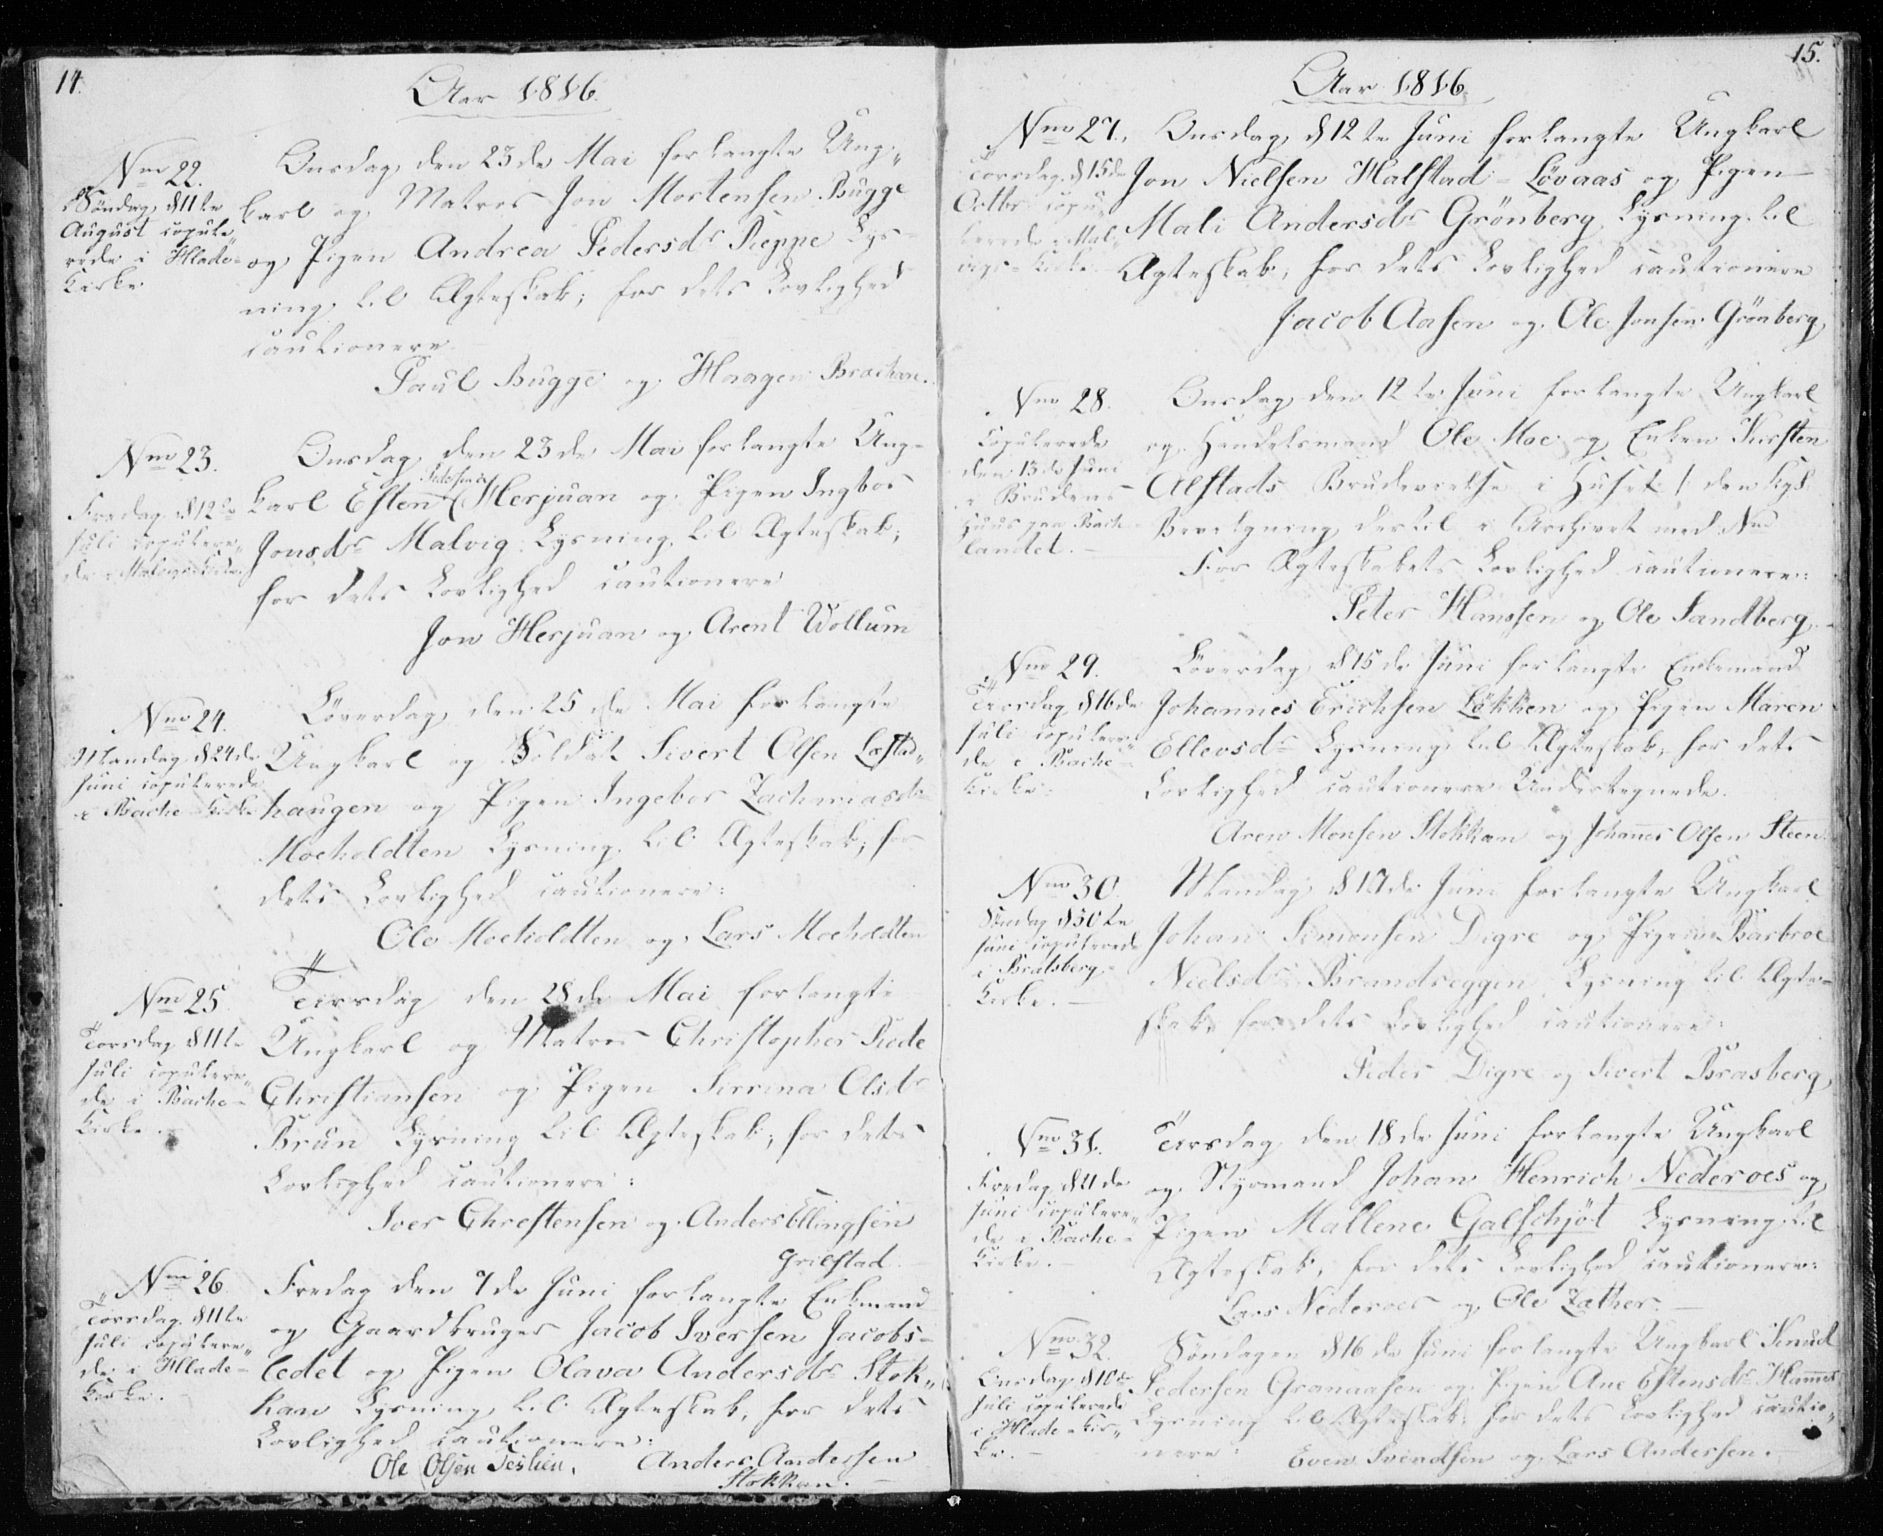 14.
Aar 1816.
Nro 22.
Søndag d 11te
August copule
rede i Hlade-
Kirke
Onsdag den 23de Mai forlangte Ung-
karl og Matros Jon Mortensen Bugge
og Pigen Andrea Pedersdr Reppe Lys-
ning til Ægteskab; for dets Lovlighed
cautionere
Paul Bugge og Haagen Brachan.
Nro 23.
Fredag d 12te
Juli copulere-
de i Malvigs Kirke.
Onsdag den 23de Mai forlangte Ung-
karl Esten Pedersen Herjuan og Pigen Ingbor
Jonsdr Malvig Lysning til Ægteskab;
for dets Lovlighed cautionere
Jon Herjuan og Arent Wollum
Nro 24.
Mandag d 24de
Juni copulerede
i Bache-Kirke
Løverdag den 25de Mai forlangte
Ungkarl og Soldat Sivert Olsen Læstad-
haugen og Pigen Ingebor Zachariasdr
Moeholdten Lysning til Ægteskab; for
dets Lovlighed cautionere:
Ole Moeholdten og Lars Moeholdten
Nro 25.
Torsdag d 11te
Juli copulere-
de i Bache-
Kirke.
Tirsdag den 28de Mai forlangte
Ungkarl og Matros Christopher Rode
Christiansen og Pigen Sirrina Olsdr
Brun Lysning til Ægteskab; for dets
Lovlighed cautionere:
Iver Chrestensen og Anders Ellingsen
Grilstad
Nro 26.
Torsdag d 11te
Juli copulere-
de i Hlade-
Kirke.
Fredag den 7de Juni forlangte Enkemand
og Gaardbruger Jacob Iversen Jacobs-
ledet og Pigen Olava Andersdr Stok-
kan Lysning til Ægteskab, for dets
Lovlighed cautionere:
Ole Olsen Teslien. Anders Andersen
Stokkan.
15.
Aar 1816.
Nro 27.
Torsdag d 15de
Octbr copu-
lerede i Mal-
vigs-Kirke.
Onsdag d 12te Juni forlangte Ungkarl
Jon Nielsen Halstad-Løvaas og Pigen
Mali Andersdr Grønberg Lysning til
Ægteskab; for dets Lovlighed cautionere
Jacob Aasen og Ole Jonsen Grønberg
Nro 28.
Copulerede
den 13de Juni
i Brudens
Huus paa Bach-
landet.
Onsdag den 12te Juni forlangte Ungkarl
og Handelsmand Ole Moe og Enken Kirsten
Alstads Brudevielse i Huset / den Kgl:
Bevilgning dertil i Archivet med Nro
For Ægteskabets Lovlighed cautionere:
Peter Hanssen og Ole Sandberg.
Nro 29.
Tirsdag d 16de
Juli copulere-
de i Bache-
Kirke.
Løverdag d 15de Juni forlangte Enkemand
Johannes Erichsen Løkken og Pigen Maren
Ellevsdr Lysning til Ægteskab; for dets
Lovlighed cautionere Undertegnede.
Aren Monsen Stokkan og Johannes Olsen Steen.
Nro 30.
Søndag d 30te
Juni copulerede
i Bratsberg-
Kirke.
Mandag d 17de Juni forlangte Ungkarl
Johan Simonsen Digre og Pigen Barbroe
Nielsdr Brandseggen Lysning til Ægte-
skab for dets Lovlighed cautionere:
Peder Digre og Sivert Brasberg
Nro 31.
Fredag d 21de
Juni copulere-
de i Bache-
Kirke.
Tirsdag den 18de Juni forlangte Ungkarl
og Styrmand Johan Henrich Nederoes og
Pigen Mallene Galschjøt Lysning til
Ægteskab; for dets Lovlighed cautionere:
Lars Nederoes og Ole Zather.
Nro 32.
Onsdag d 10de
Juli copulerede
i Hlade-Kir-
ke.
Søndagen d 16de Juni forlangte Ungkarl Knud
Pedersen Granaasen og Pigen Ane Estensdr Hammer
Lysning til Ægteskab: for dets Lovlighed cautio-
nere: Even Svendsen og Lars Andersen.